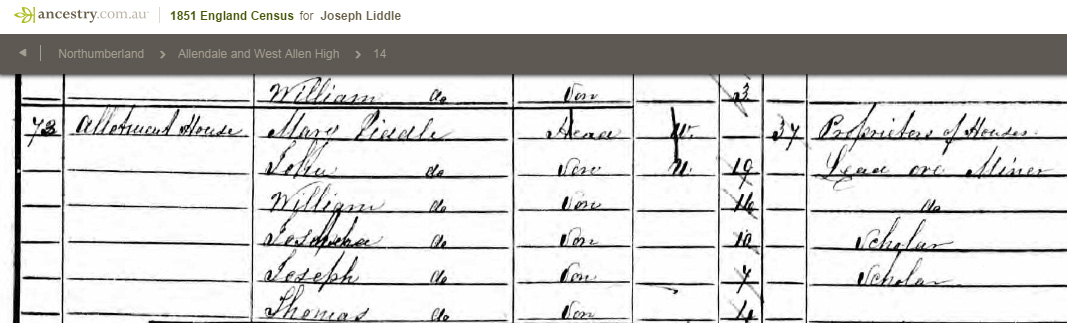 ancestry.com.au 1851 England Census for Joseph Liddle
Northumberland Allendale and West Allen High 14
William do Son 3
73 Allotment House Mary Liddle Head W. 37 Proprietor of Houses
John do Son U. 19 Lead ore Miner
William do Son do
do Son 10 Scholar
Joseph do Son 7 Scholar
Thomas do Son 4